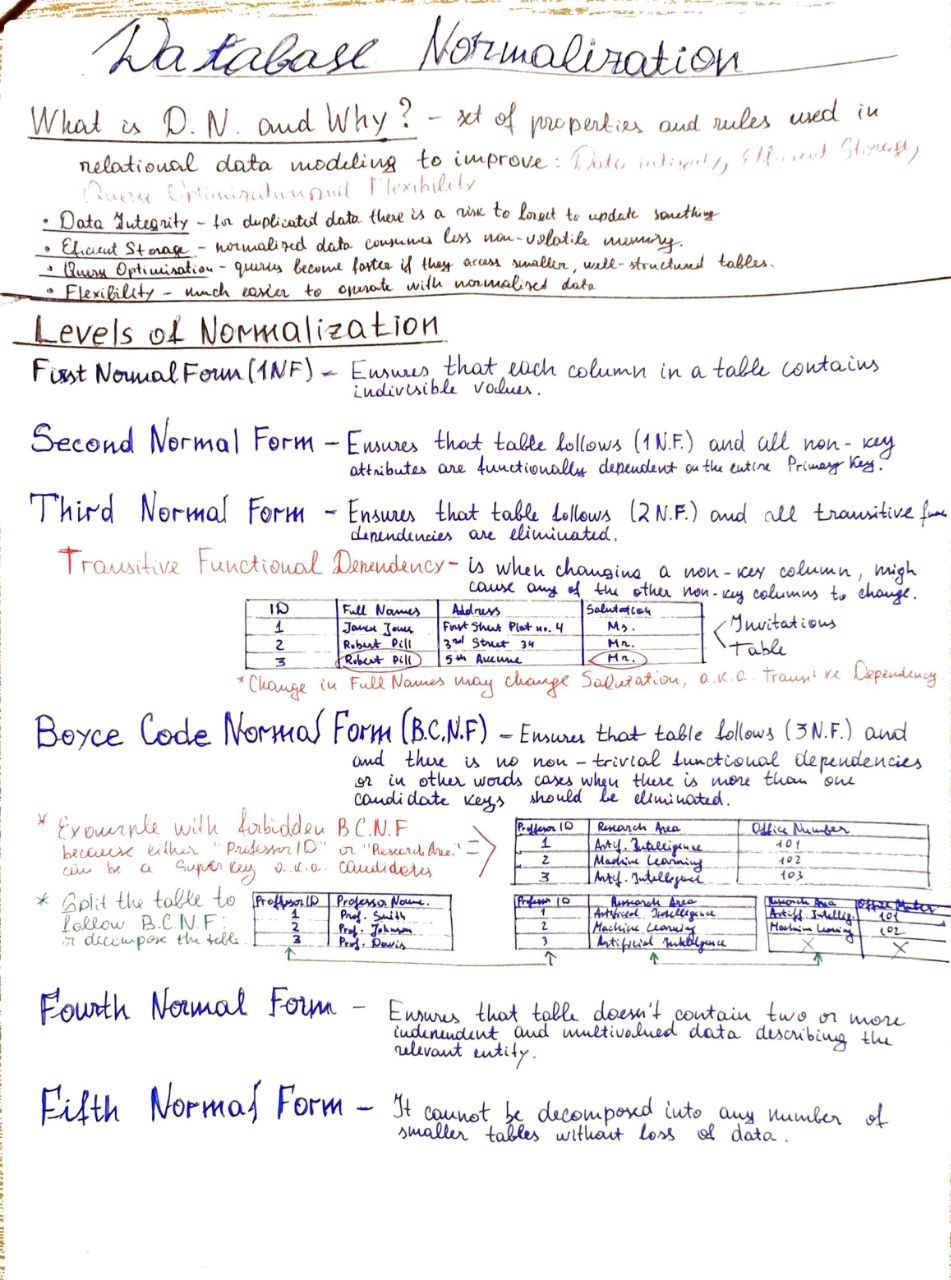 Database Normalization
What is D.N. and Why? - set of properties and rules used in
relational data modeling to improve: Data integrity, Efficient Storage,
Query Optimization and Flexibility
• Data Integrity - for duplicated data there is a risk to forget to update something
• Eficient Storage - normalized data consumes less non-volatile memory.
• Query Optimisation - queries become faster if they access smaller, well-structured tables.
• Flexibility - much easier to operate with normalized data
Levels of Normalization
First Normal Form (1NF) - Ensures that each column in a table contains
indivisible values.
Second Normal Form - Ensures that table follows (1N.F.) and all non-key
attributes are functionally dependent on the entire Primary Key.
Third Normal Form - Ensures that table follows (2N.F.) and all transitive func
dependencies are eliminated.
Transitive Functional Dependency - is when changing a non-key column, migh
cause any of the other non-key columns to change.
ID Full Names Address Salutation
1 First Street Plot no. 4 Ms.
2 Robert Pill 3rd Street 34 Mr.
3 Robert Pill 5th Avenue Mr.
Invitations
Table
*Change in Full Names may change Salutation, a.k.a. Transitive Dependency
Boyce Code Normal Form (B.C.N.F) - Ensures that table follows (3N.F.) and
and there is no non-trivial functional dependencies
or in other words cases when there is more than one
candidate keys should be eliminated.
* Example with forbidden B.C.N.F
because either "Professor ID" or "Research Area."
can be a Super Key a.k.a. candidates
Proffesor ID Research Area Office Number
1 Artif. Intelligence 101
2 Machine Learning 102
3 Artif. Intelligence 103
* Split the table to
follow B.C.N.F.
or decompose the table.
Proffesor ID Professor Name.
1 Prof. Smith
2 Prof. Johnson
3 Prof. Davis
Professor ID Research Area
1 Artificial Intelligence
2 Machine Learning
3 Artificial Intelligence
Research Area Office Number
Artiff. Intellig. 101
Machine Learning 102
X X
Fourth Normal Form - Ensures that table doesn't contain two or more
independent and multivalued data describing the
relevant entity.
Fifth Normal Form - It cannot be decomposed into any number of
smaller tables without loss of data.